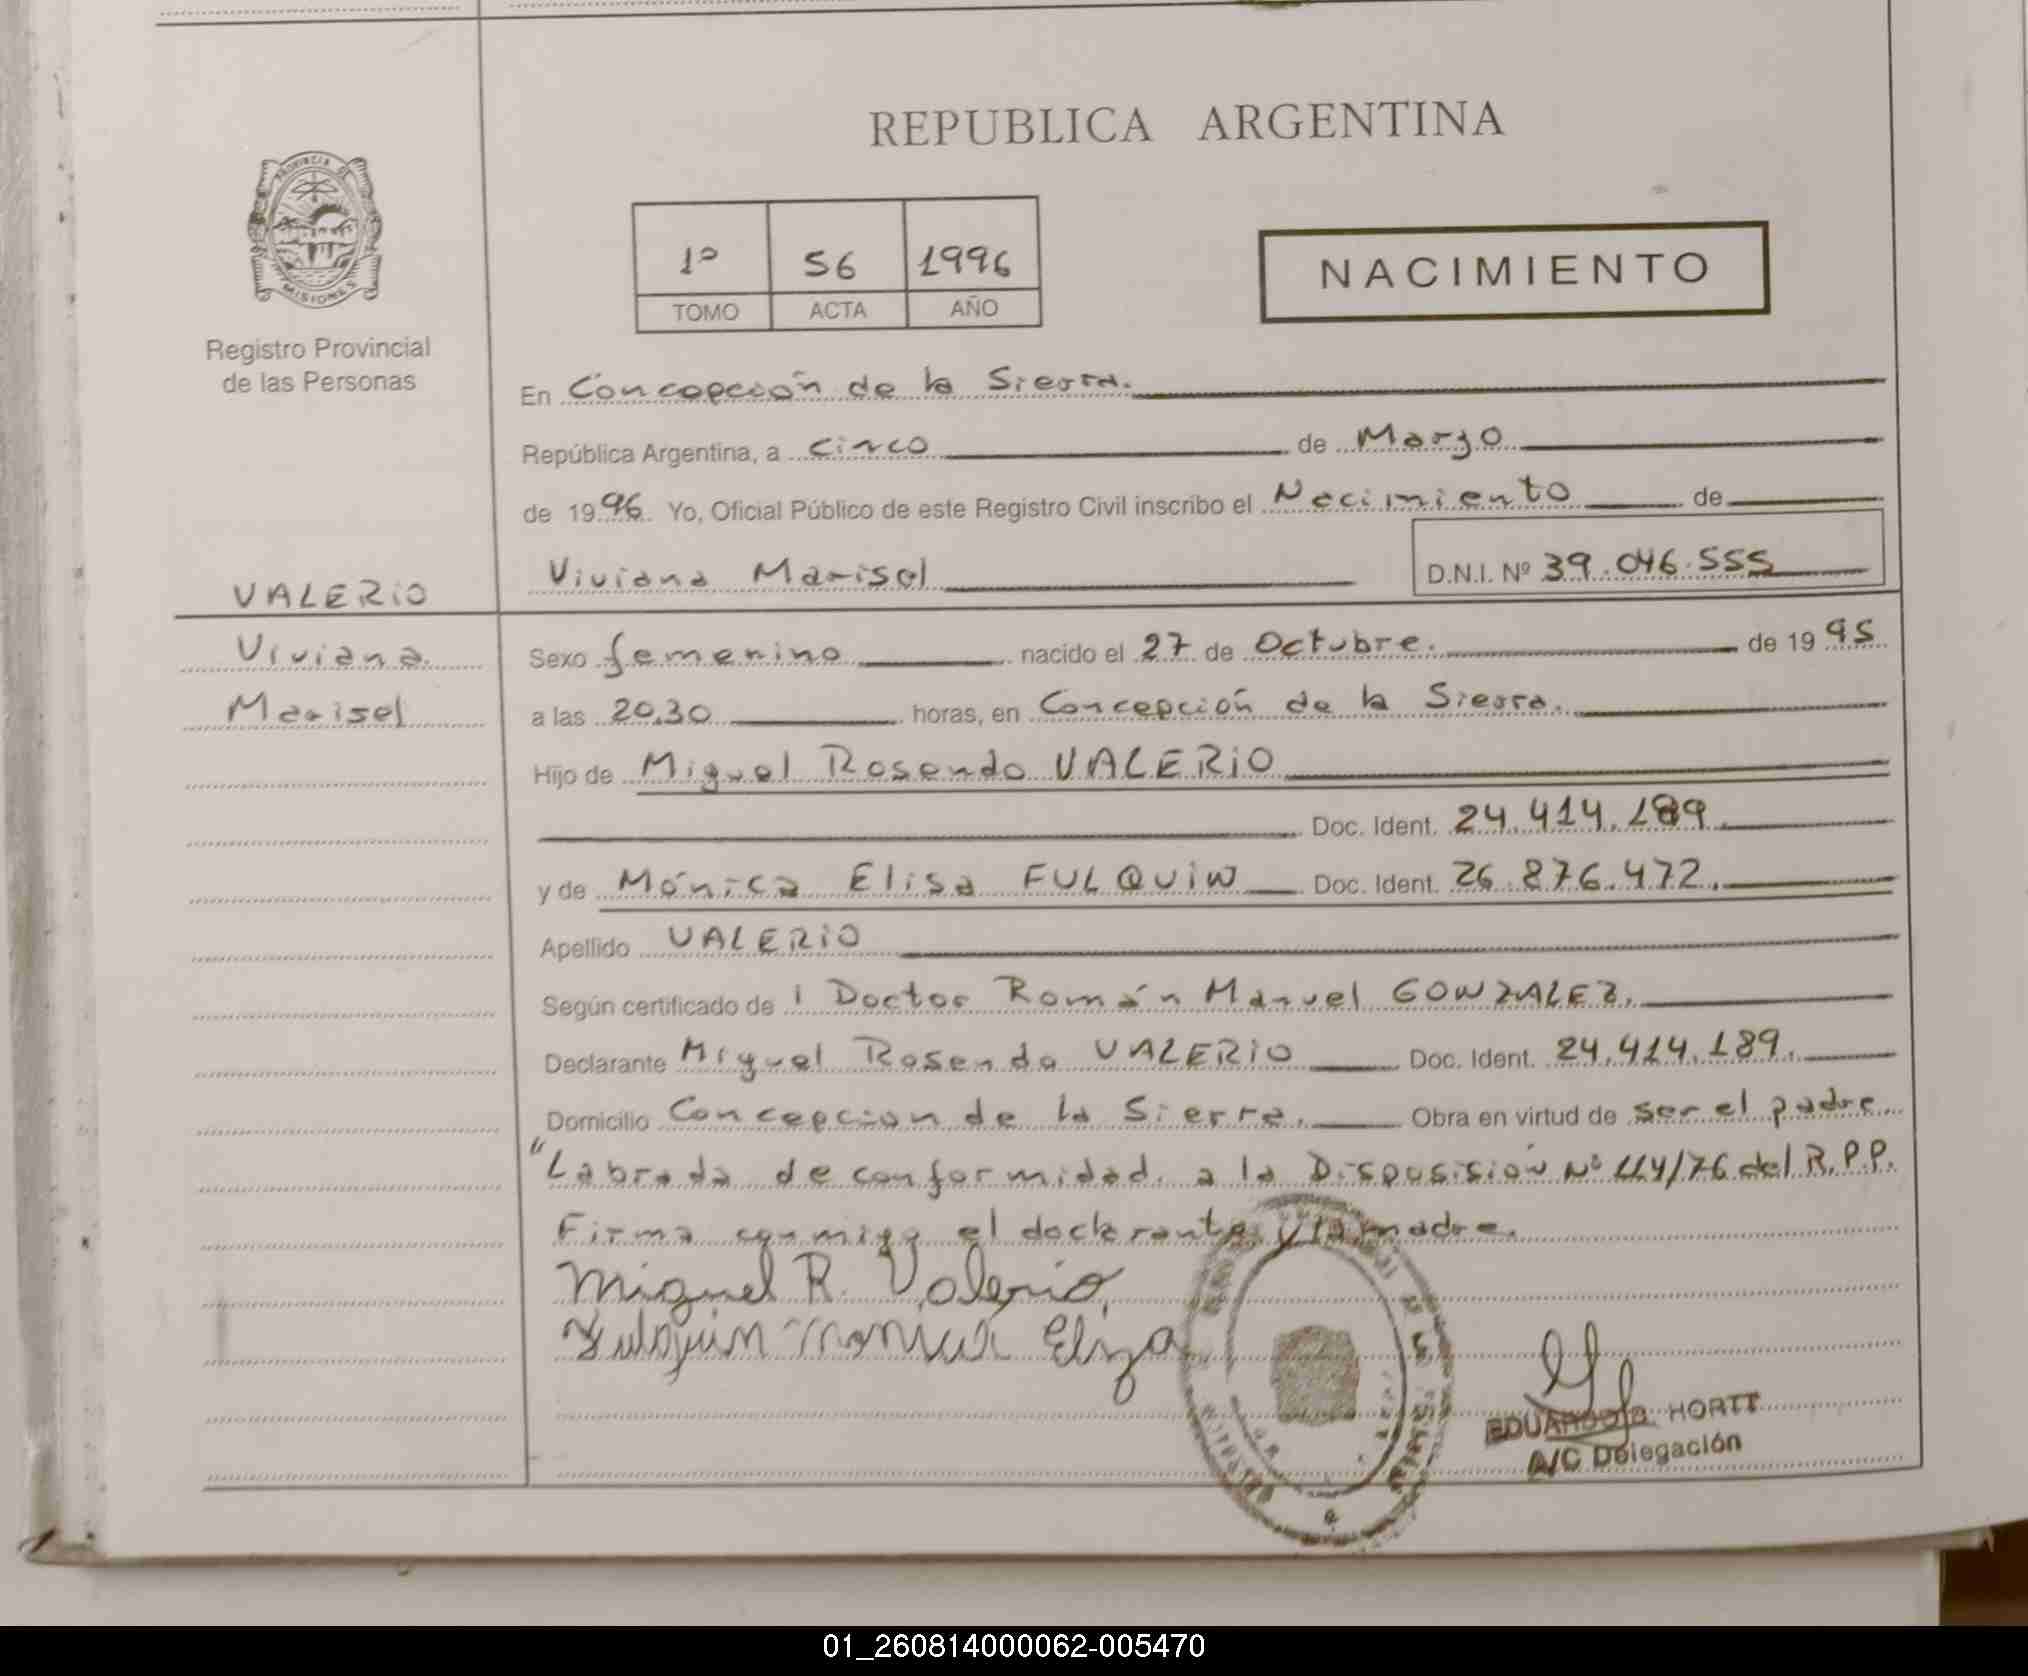 REPUBLICA ARGENTINA
PROVINCIA DE
MISIONES
Registro Provincial
de las Personas
1º 56 1996
TOMO ACTA AÑO
NACIMIENTO
En Concepción de la Sierra.
República Argentina, a cinco de Marzo
de 1996. Yo, Oficial Público de este Registro Civil inscribo el Nacimiento de
Viviana Marisel D.N.I. Nº 39.046.555
VALERIO
Viviana
Marisel
Sexo femenino nacido el 27 de Octubre. de 1995
a las 20,30 horas, en Concepción de la Sierra.
Hijo de Miguel Rosendo VALERIO
Doc. Ident. 24.414.189
y de Mónica Elisa FULQUIN Doc. Ident. 26.876.472.
Apellido VALERIO
Según certificado de Doctor Román Manuel GONZALEZ.
Declarante Miguel Rosendo VALERIO Doc. Ident. 24.414.189.
Domicilio Concepcion de la Sierra. Obra en virtud de ser el padre
"Labrada de conformidad a la Disposisión Nº 114/76 del R.P.P.
Firma conmigo el declarante y la madre.
Miguel R. Valerio
Fulquin Monica Eliza
EDUARDO HORTT
A/C Delegación
01_260814000062-005470